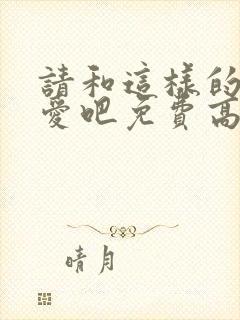 請和這樣的
愛吧免費高
晴月